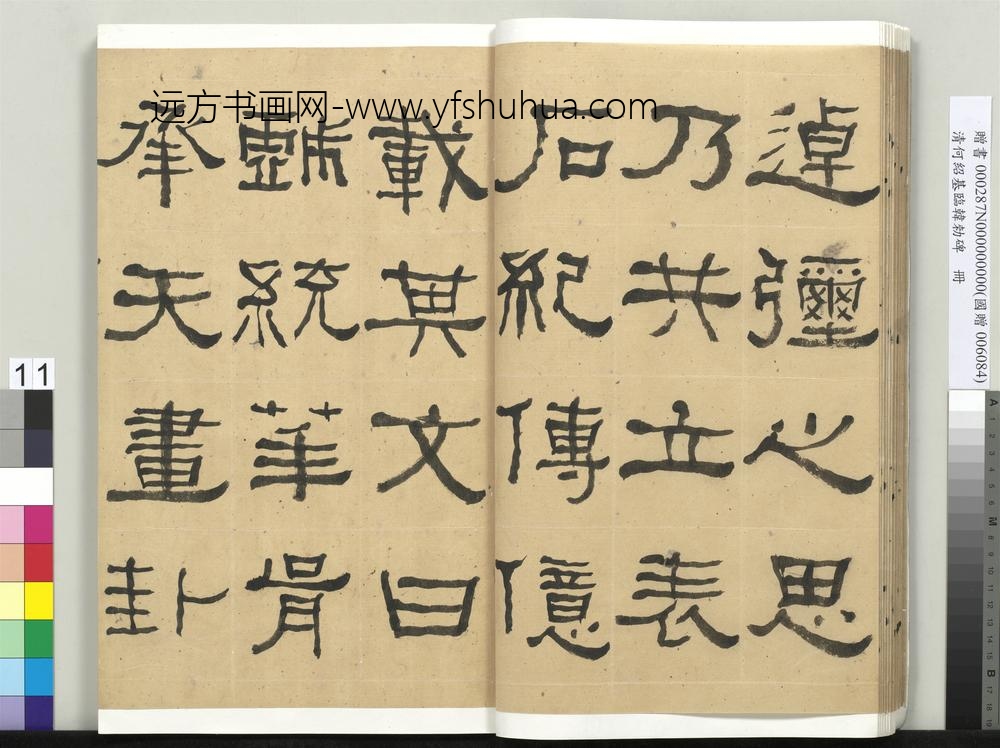 远方书画网-www.yfshuhua.com
逴彌之思
乃共立表
石紀傳億
載其文曰
統華胥
承天畫卦
贈書 000287N000000000(國贈 006084)
清何绍基臨韓勑碑 冊
11